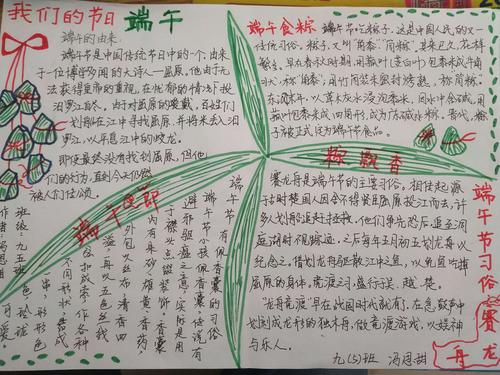 我们的节日 端午
端午的由来.
端午节是中国传统节日中的一个,由来
于一位博学多闻的大诗人—屈原,他由于无
法获得重用
汨罗江自尽。由于对屈原的爱戴,百姓们
划船在江中寻找屈原,并将米丢入汨
罗江,以平息江中的蛟龙。
即使最终没有找到屈原,但他
们的行为,直到今天仍然
被人们传颂。
端午食粽
端午节吃粽子,这是中国人民的又一
传统习俗。粽子,又叫"角黍""筒粽",其由来已久,花样
繁多。早在春秋时期,用菰叶(茭白叶)包黍米成牛角
状,称"角黍";用竹筒装米密封烤熟,称筒粽。
东汉末年,以草木灰水浸泡黍米,因水中含碱,用
菰叶包黍米成四角形,成为广东碱水粽。晋代,粽
子被正式定为端午节食品。
粽飘香
赛龙舟是端午节的主要习俗。相传起源
于古时楚国人因舍不得贤臣屈原投江而去,许
多人划船追赶拯救。他们争先恐后,追至洞
庭湖时不见踪迹。之后每年五月初五划龙舟以
纪念之。借划龙舟驱散江中之鱼,以免鱼吃掉
屈原的身体。竞渡之习,盛行于吴、越、楚。
"龙舟竞渡"早在战国时代就有了。在急鼓声中
划刻成龙形的独木舟,做竞渡游戏,以娱神
与乐人。
端午节习俗赛龙舟
端午
端午节有佩香囊的习俗
端午节小孩佩香囊,传说有
避邪驱瘟之意,实际是用
于襟头点缀装饰。香囊
内有朱砂、雄黄、香药,
外包以丝布,清香四
溢,再以五色丝线
弦扣成索,作各种
不同形状,结成
一串,形形色
色,玲珑
可爱。
班级:九五班
作者:冯恩甜
九(5)班 冯恩甜